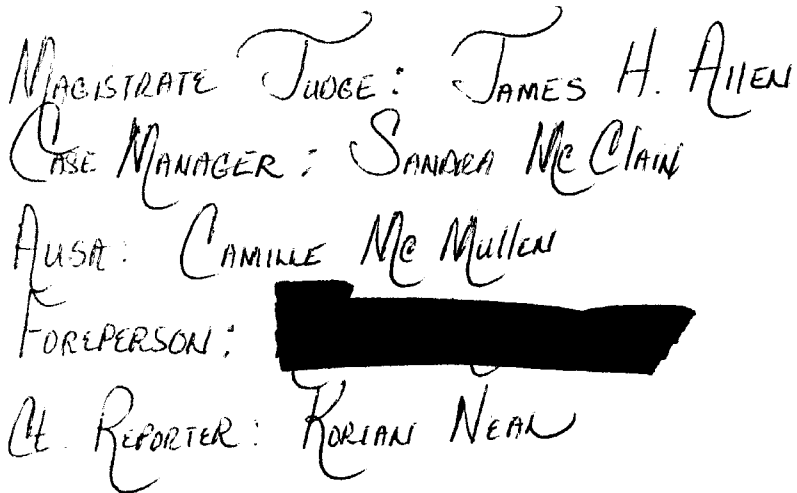 Magistrate Judge: James H. Allen
Case Manager: Sandra McClain
AUSA: Camille McMullen
Foreperson:
Ct. Reporter: Korian Neal